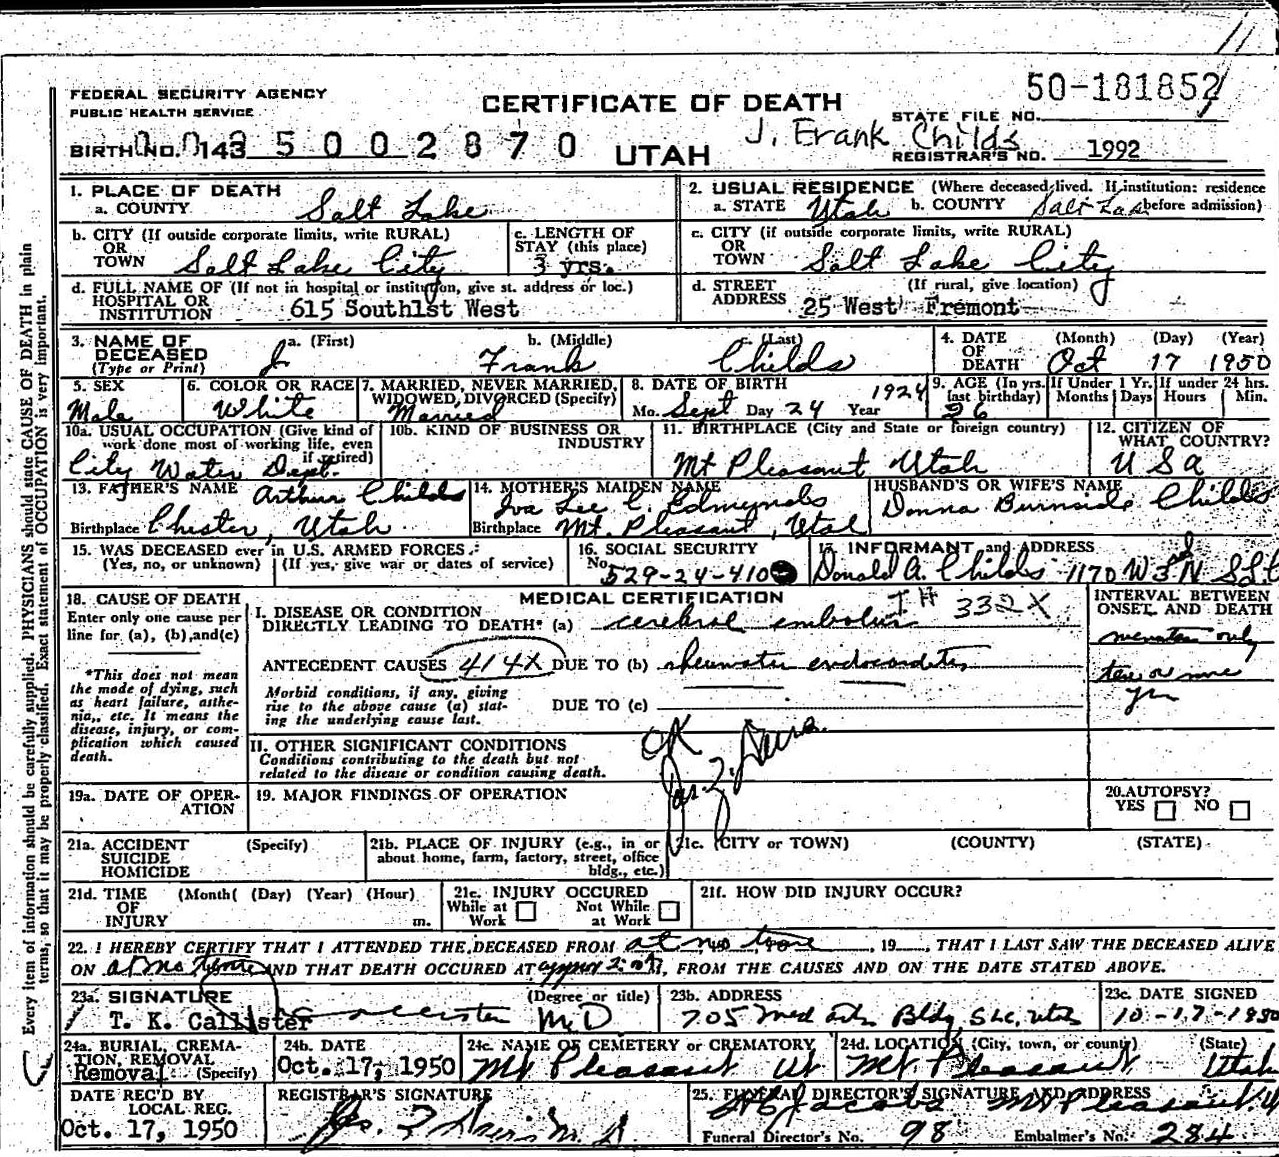 11
FEDERAL SECURITY AGENCY
PUBLIC HEALTH SERVICE
CERTIFICATE OF DEATH
50-181852
STATE FILE NO.
BIRTH NO. 143 5 0 0 2 8 7 0
UTAH
J. Frank Childs
REGISTRAR'S NO. 1992
1. PLACE OF DEATH
a. COUNTY Salt Lake
2. USUAL RESIDENCE (Where deceased lived. If institution: residence before admission)
a. STATE Utah b. COUNTY Salt Lake
b. CITY (If outside corporate limits, write RURAL)
OR
TOWN Salt Lake City
c. LENGTH OF
STAY (this place)
3 yrs.
c. CITY (if outside corporate limits, write RURAL)
OR
TOWN Salt Lake City
d. FULL NAME OF (If not in hospital or institution, give st. address or loc.)
HOSPITAL OR
INSTITUTION 615 South1st West
d. STREET (If rural, give location)
ADDRESS 25 West Fremont
3. NAME OF
DECEASED
(Type or Print)
a. (First) b. (Middle) c. (Last)
J. Frank Childs
4. DATE
OF
DEATH
(Month) (Day) (Year)
Oct 17 1950
5. SEX
Male
6. COLOR OR RACE
White
7. MARRIED, NEVER MARRIED,
WIDOWED, DIVORCED (Specify)
Married
8. DATE OF BIRTH 1924
Mo. Sept Day 24 Year
9. AGE (In yrs. last birthday)
26
If Under 1 Yr. Months Days
If under 24 hrs. Hours Min.
10a. USUAL OCCUPATION (Give kind of
work done most of working life, even
if retired)
City Water Dept.
10b. KIND OF BUSINESS OR
INDUSTRY
11. BIRTHPLACE (City and State or foreign country)
Mt Pleasant Utah
12. CITIZEN OF
WHAT COUNTRY?
U S A
13. FATHER'S NAME Arthur Childs
Birthplace Chester, Utah
14. MOTHER'S MAIDEN NAME
Iva Lee C. Edmunds
Birthplace Mt. Pleasant, Utah
HUSBAND'S OR WIFE'S NAME
Donna Burnside Childs
15. WAS DECEASED ever in U.S. ARMED FORCES
(Yes, no, or unknown) (If yes, give war or dates of service)
16. SOCIAL SECURITY
No. 529-24-410
17. INFORMANT and ADDRESS
Donald A. Childs 1170 W 3rd N SLC
18. CAUSE OF DEATH
Enter only one cause per
line for (a), (b), and(c)
*This does not mean
the mode of dying, such
as heart failure, asthe-
nia,, etc. It means the
disease, injury, or com-
plication which caused
death.
MEDICAL CERTIFICATION
332X
I. DISEASE OR CONDITION
DIRECTLY LEADING TO DEATH* (a) cerebral embolus
ANTECEDENT CAUSES 414X DUE TO (b) rheumatic endocarditis
Morbid conditions, if any, giving
rise to the above cause (a) stat-
ing the underlying cause last.
DUE TO (c)
INTERVAL BETWEEN
ONSET AND DEATH
minutes only
ten or more
yrs
II. OTHER SIGNIFICANT CONDITIONS
Conditions contributing to the death but not
related to the disease or condition causing death.
OK
19a. DATE OF OPER-
ATION
19. MAJOR FINDINGS OF OPERATION
20. AUTOPSY?
YES NO
21a. ACCIDENT (Specify)
SUICIDE
HOMICIDE
21b. PLACE OF INJURY (e.g., in or
about home, farm, factory, street, office
bldg., etc.)
21c. (CITY or TOWN) (COUNTY) (STATE)
21d. TIME (Month( (Day) (Year) (Hour)
OF
INJURY m.
21e. INJURY OCCURED
While at Work Not While at Work
21f. HOW DID INJURY OCCUR?
22. I HEREBY CERTIFY THAT I ATTENDED THE DECEASED FROM at no time, 19 , THAT I LAST SAW THE DECEASED ALIVE
ON at no time AND THAT DEATH OCCURED AT approx M, FROM THE CAUSES AND ON THE DATE STATED ABOVE.
23a. SIGNATURE (Degree or title)
T. K. Callister M.D
23b. ADDRESS
705 Med Arts Bldg, SLC, Utah
23c. DATE SIGNED
10-17-1950
24a. BURIAL, CREMA-
TION, REMOVAL
Removal (Specify)
24b. DATE
Oct. 17, 1950
24c. NAME OF CEMETERY or CREMATORY
Mt Pleasant Ut
24d. LOCATION (City, town, or county) (State)
Mt. Pleasant Utah
DATE REC'D BY
LOCAL REG.
Oct. 17, 1950
REGISTRAR'S SIGNATURE
25. FUNERAL DIRECTOR'S SIGNATURE AND ADDRESS
Jacobs Mt Pleasant, U
Funeral Director's No. 98 Embalmer's No. 284
Every item of information should be carefully supplied. PHYSICIANS should state CAUSE OF DEATH in plain
terms, so that it may be properly classified. Exact statement of OCCUPATION is very important.